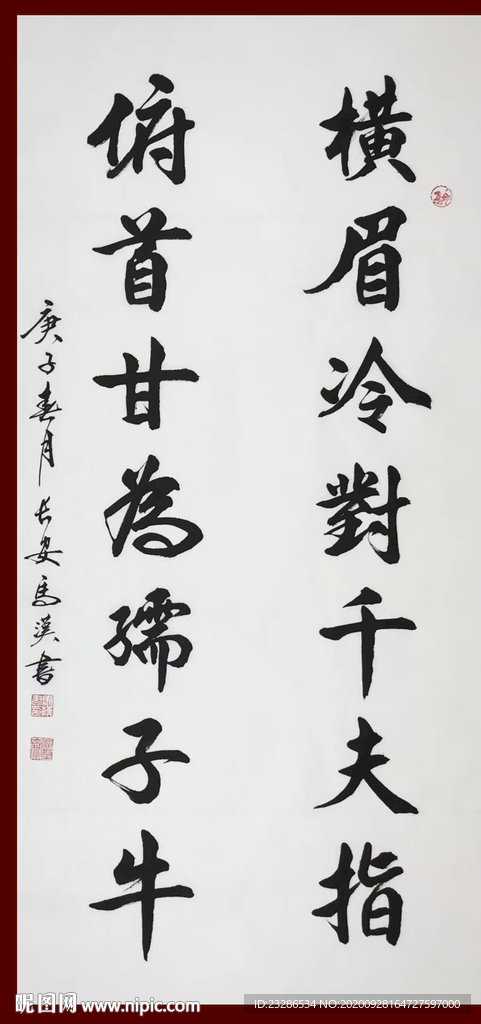 橫眉冷對千夫指
俯首甘為孺子牛
庚子春月長安馬漢書
昵图网 www.nipic.com
ID:23286534 NO:20200928164727597000